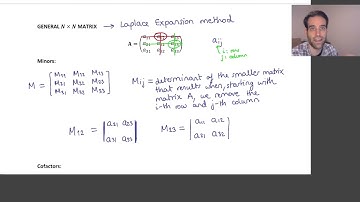 GENERAL N × N MATRIX → Laplace Expansion method
A = a11 a12 a13
a21 a22 a23
a31 a32 a33
aij
i: row
j: column
Minors:
M = [M11 M12 M13
M21 M22 M23
M31 M32 M33]
Mij = determinant of the smaller matrix
that results when, starting with
matrix A, we remove the
i-th row and j-th column
M12 = |a21 a23
a31 a33|
M23 = |a11 a12
a31 a32|
Cofactors: